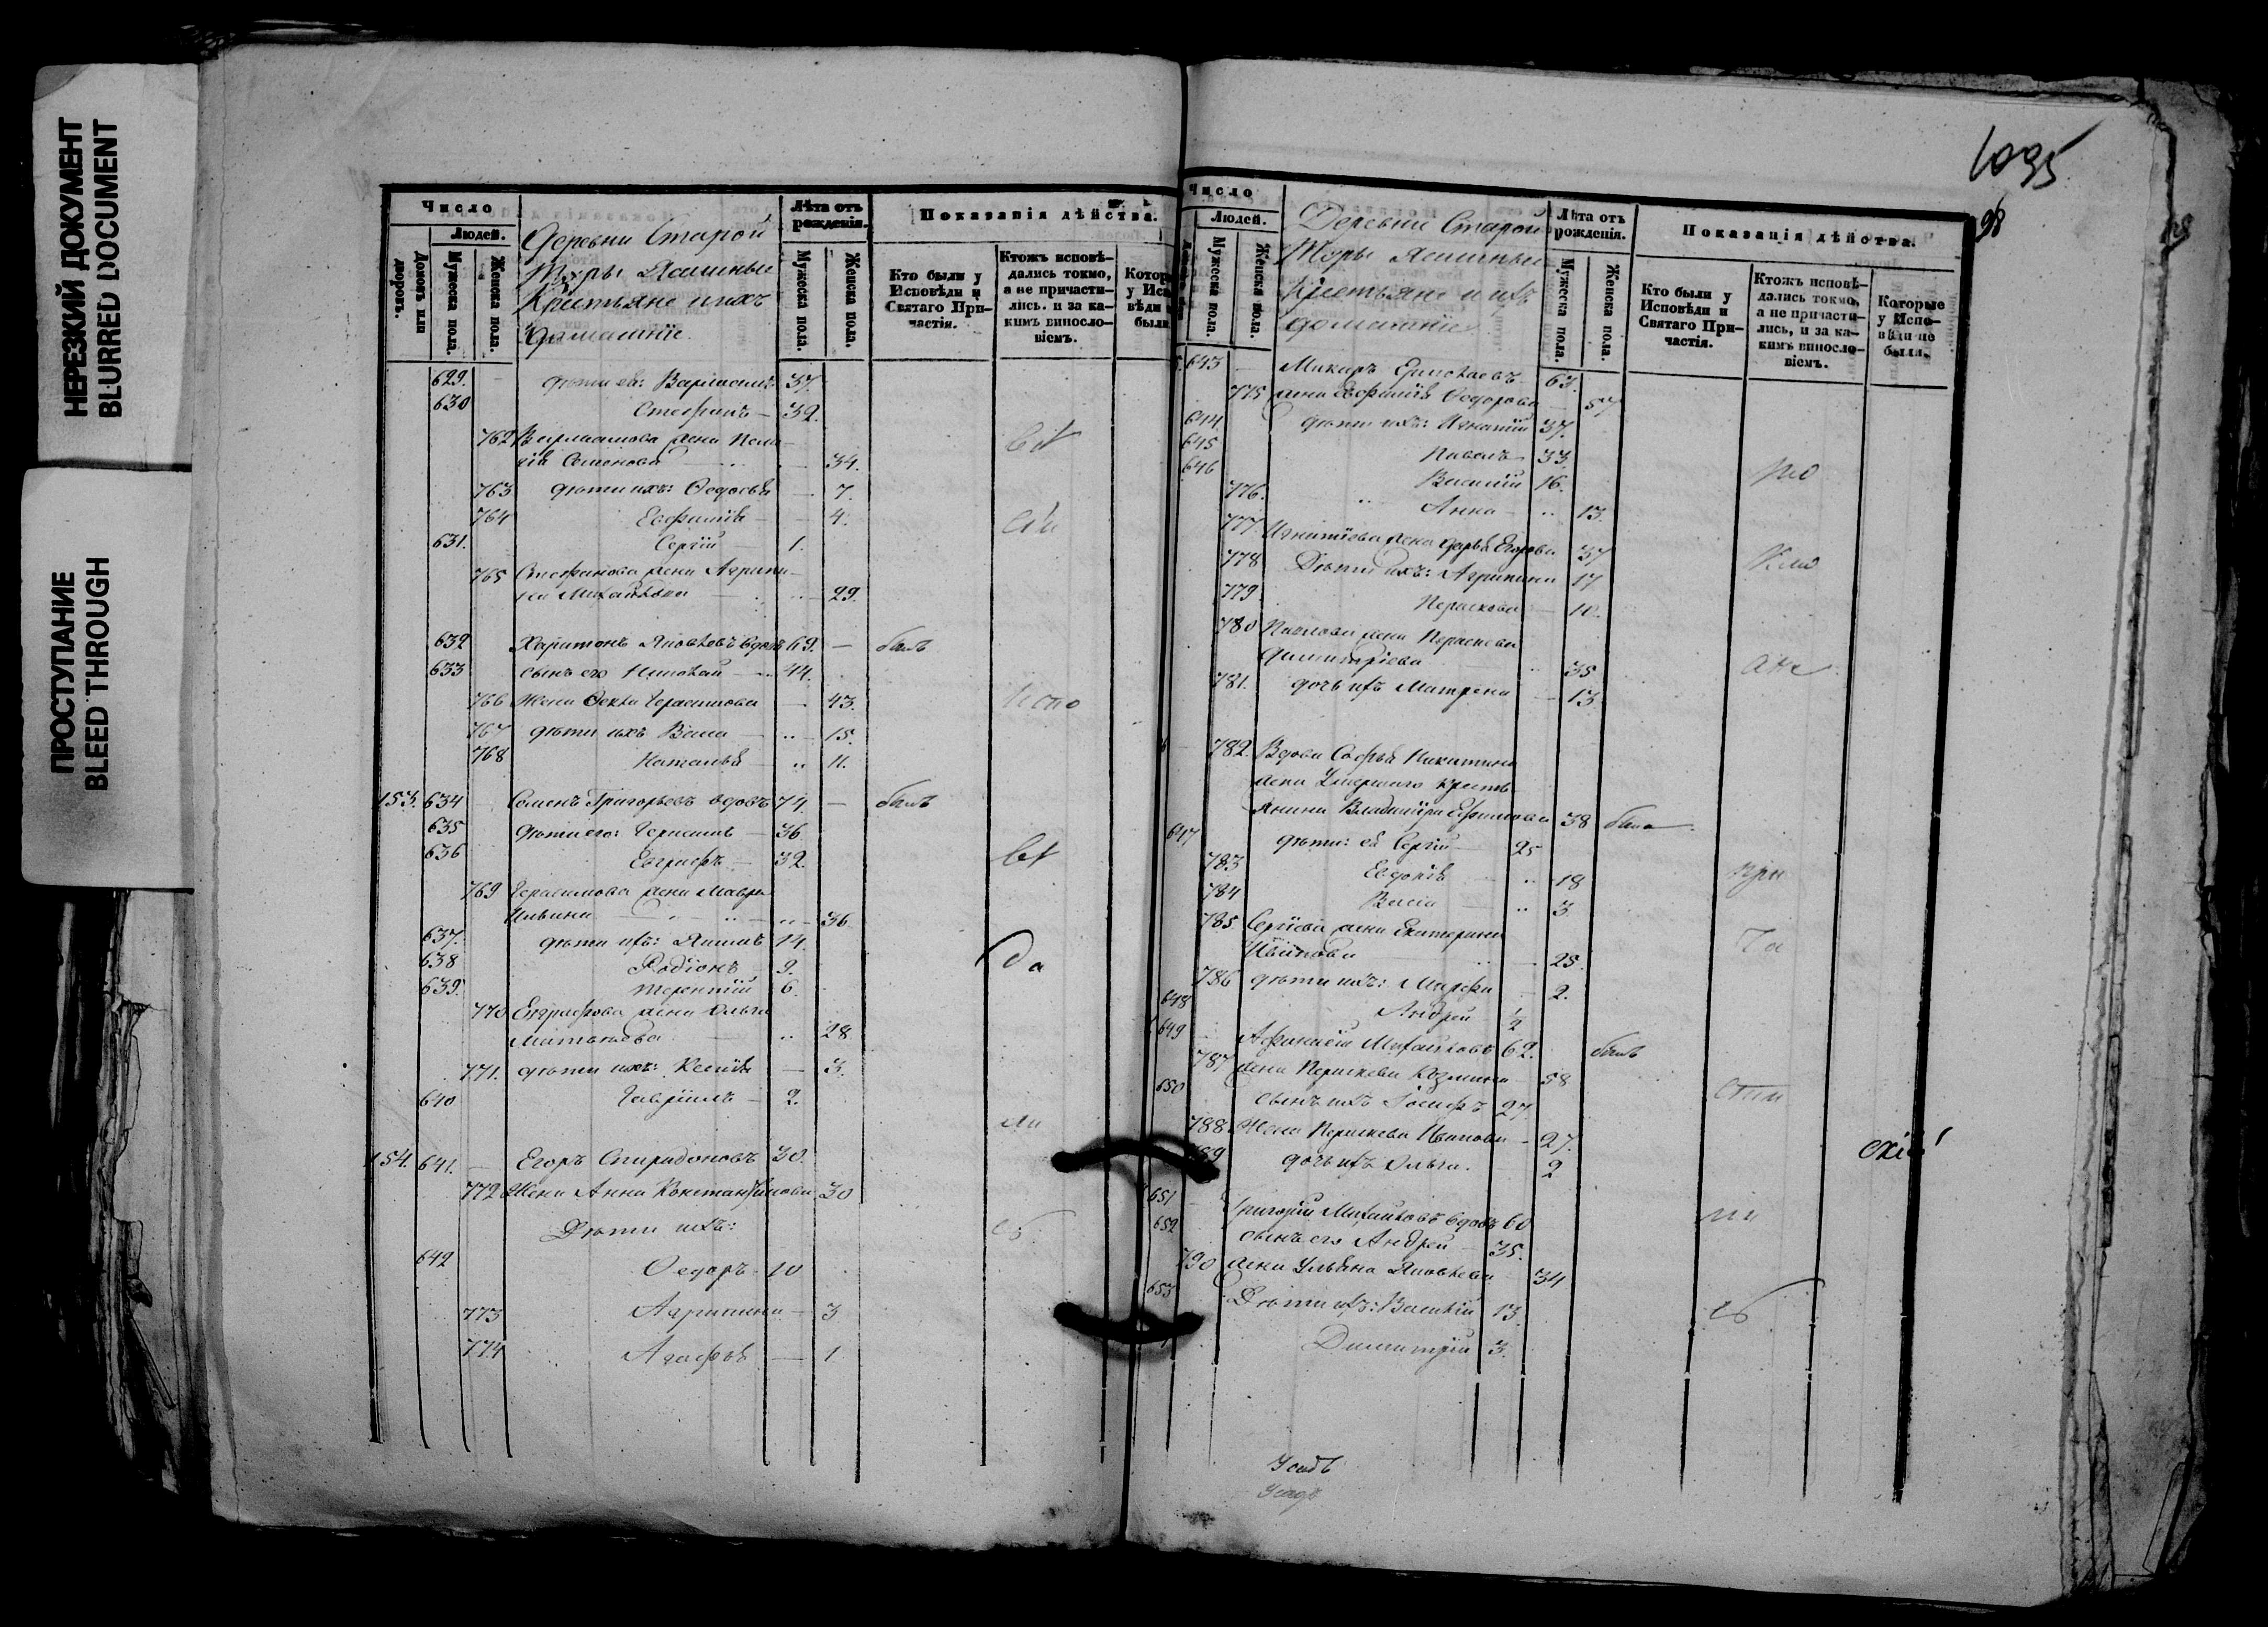 НЕРЕЗКИЙ ДОКУМЕНТ
BLURRED DOCUMENT
ПРОСТУПАНИЕ
BLEED THROUGH
Число
Людей.
Домовъ или дворовъ.
Мужеска пола.
Женска пола.
Деревни Старой
Крестьяне и ихъ
домашніе.
Лѣта отъ рожденія.
Мужеска пола.
Женска пола.
Показанія дѣйства.
Кто были у Исповѣди и Святаго Причастія.
Ктожъ исповѣдались токмо, а не причастились. и за какимъ винословіемъ.
629. дѣти ея: 37.
630 Стефанъ — 32.
762 жена
Семенова 34.
763 дѣти ихъ: Ѳедосья 7.
764 Евфимія 4.
631. Сергій 1.
765 Стефанова жена Агрипи-
на Михайлова 29.
632 Харитонъ Яковлевъ вдовъ 69. — былъ
633 сынъ его Николай 44.
766 Жена Ѳекла Герасимова 43.
767 дѣти ихъ 15.
768 Наталья 11.
153. 634 Семенъ Григорьевъ вдовъ 74. — былъ
635 дѣти его: 36
636 Евграфъ 32.
769 Герасимова жена Мавра
Ильина 36
637. дѣти ихъ: 14.
638 Родіонъ 9.
639. Терентій 6.
770 Евграфова жена Ольга
Матвѣева 28
771. дѣти ихъ: Ксенія 3.
640 Гавріилъ 2.
154. 641. Егоръ Спиридоновъ 30.
772 Жена Анна Константинова 30
Дѣти ихъ:
642 Ѳедоръ 10
773 Агрипина 3
774 Агафья 1
1035
98
Число
Людей.
Мужеска пола.
Женска пола.
Деревни Старой
Крестьяне и ихъ
домашніе
Лѣта отъ рожденія.
Мужеска пола.
Женска пола.
Показанія дѣйства.
Кто были у Исповѣди и Святаго Причастія.
Ктожъ исповѣдались токмо, а не причастились, и за какимъ винословіемъ.
Которые у Исповѣди не были.
643 Ермолаевъ 63.
775 жена Евфимія Ѳедорова 57
644 дѣти ихъ: Игнатій 37.
645 Павелъ 33
646 Василій 16.
776. Анна 13.
777. Игнатіева жена Дарья Егорова 37
778 Дѣти ихъ: Агрипина 17
779 Параскева 10.
780 Павлова жена Параскева
Димитріева 35
781. дочь ихъ Матрена 13
782. Вдова Софья Никитина
жена Умершаго кресть
янина Владиміра Ефимова 38 была
647 дѣти: ея Сергій 25
783 Евдокія 18
784 3
785. Сергіева жена Екатерина
Иванова 25.
786 дѣти ихъ: Марфа 2.
648 Андрей 1/2
649 Афанасій Михайловъ 62. былъ
787 жена Параскева Козмина 58
650 сынъ ихъ Іосифъ 27.
788. Жена Параскева Иванова 27.
789 дочь ихъ Ольга. 2
651 Григорій Михайловъ вдовъ 60
652 сынъ его Андрей 35.
790 жена Ульяна Яковлева 34
653 Дѣти ихъ: Василій 13.
Димитрій 3.